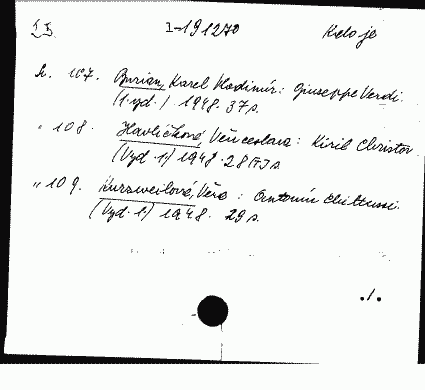 I-191270 Kdo je
Sv. 107. Burian, Karel Vladimír: Giuseppe Verdi.
(1. vyd.) 1948. 37 s.
" 108. Havlíčková, Věnceslava: Kiril Christov
(Vyd. 1) 1948. 28 s
" 109. Kurzweilová, Věra: Antonín Chittussi.
(Vyd. 1) 1948. 29 s.
./.